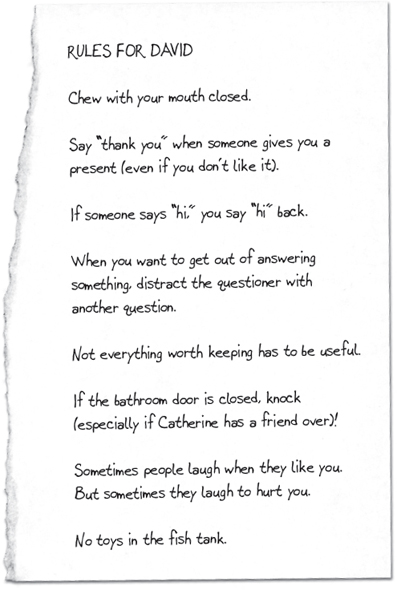 RULES FOR DAVID
Chew with your mouth closed.
Say "thank you" when someone gives you a
present (even if you don't like it).
If someone says "hi," you say "hi" back.
When you want to get out of answering
something, distract the questioner with
another question.
Not everything worth keeping has to be useful.
If the bathroom door is closed, knock
(especially if Catherine has a friend over)!
Sometimes people laugh when they like you.
But sometimes they laugh to hurt you.
No toys in the fish tank.